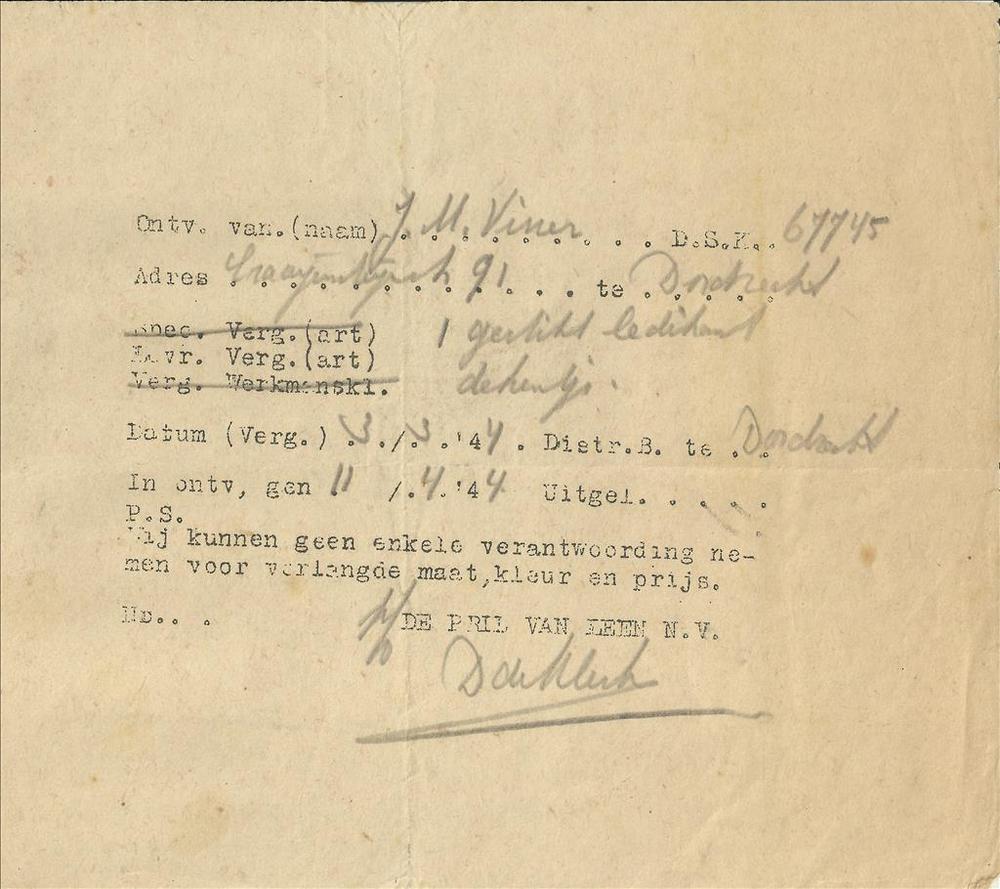 Ontv. van.(naam) J. M. Visser . . . D.S.K.. 67745
Adres . . . 91 . . . te . Dordrecht
Spec. Verg.(art) 1 gestikt ledikant
Invr. Verg.(art)
Verg. Werkmanskl. dekentje.
Datum (Verg.) . 3 ./ 3 . '44 . Distr.B. te . Dordrecht
In ontv, gen . 11 /.4.'44 Uitgel. . . . .
P.S.
Wij kunnen geen enkele verantwoording ne-
men voor verlangde maat,kleur en prijs.
No.. . p/o DE PRIL VAN LEEN N.V.
D de Klerk